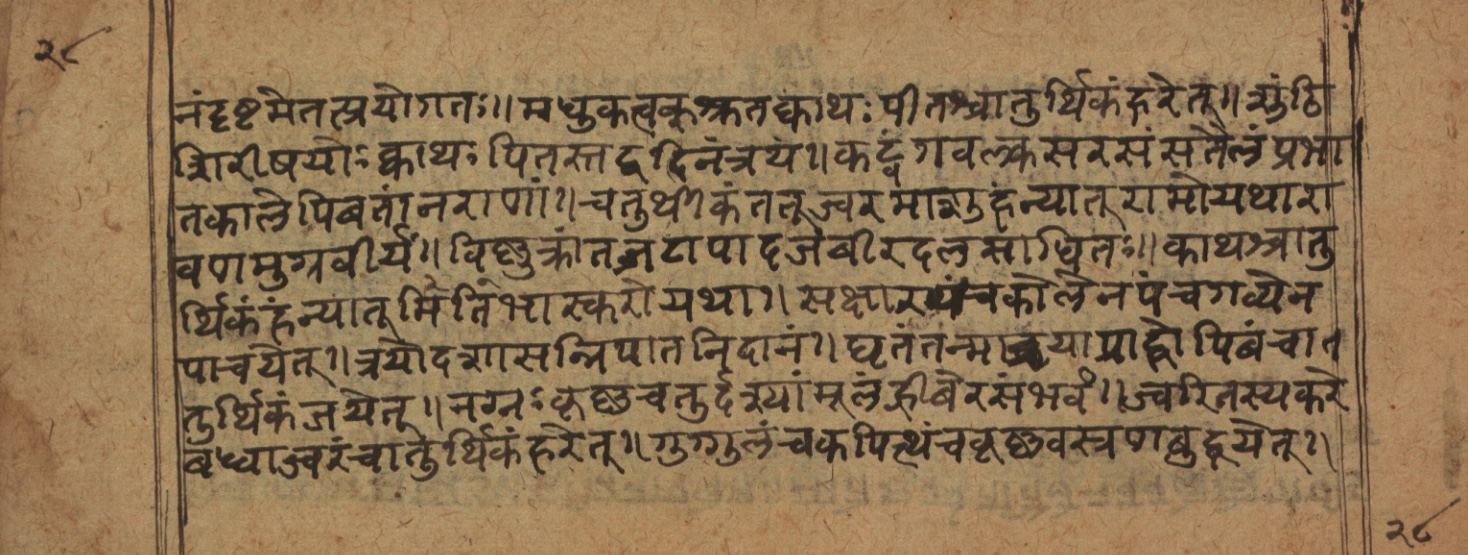 २८
नंदृष्टमेतत्प्रयोगतः॥ मधुकत्वक्कृतक्वाथः पीतश्चातुर्थिकंहरेत्॥ सुंठि
शिरीषयोः क्वाथः पितस्तद्वद्दिनंत्रयं॥ कदूंगवल्कसरसं सतैलं प्रभा
तकाले पिबतां नराणां॥ चतुर्थीकं ततूज्वरमाशुहन्यात् रामोयथारा
वणमुग्रवीर्यं॥ विष्णुक्रांतजटापादजंबीरदलसाधितः॥ क्वाथश्चातु
र्थिकंहंन्यात् मितिभास्करोयथा॥ सक्षारपंचकोलेनपंचगव्येन
पाचयेत्॥ त्रयोदशासन्निपातनिदानं॥ घृतंतन्मात्रयाप्राह्णे पिबंचात
तुर्थिकंजयेत्॥ नग्नः कृष्णचतुर्दश्यांमूलंह्रीबेरसंभवं॥ ज्वरितस्यकरे
बध्वाज्वरंचातुर्थिकंहरेत्॥ गुग्गुलंचकपित्थंचकृष्णवस्त्रण
२८